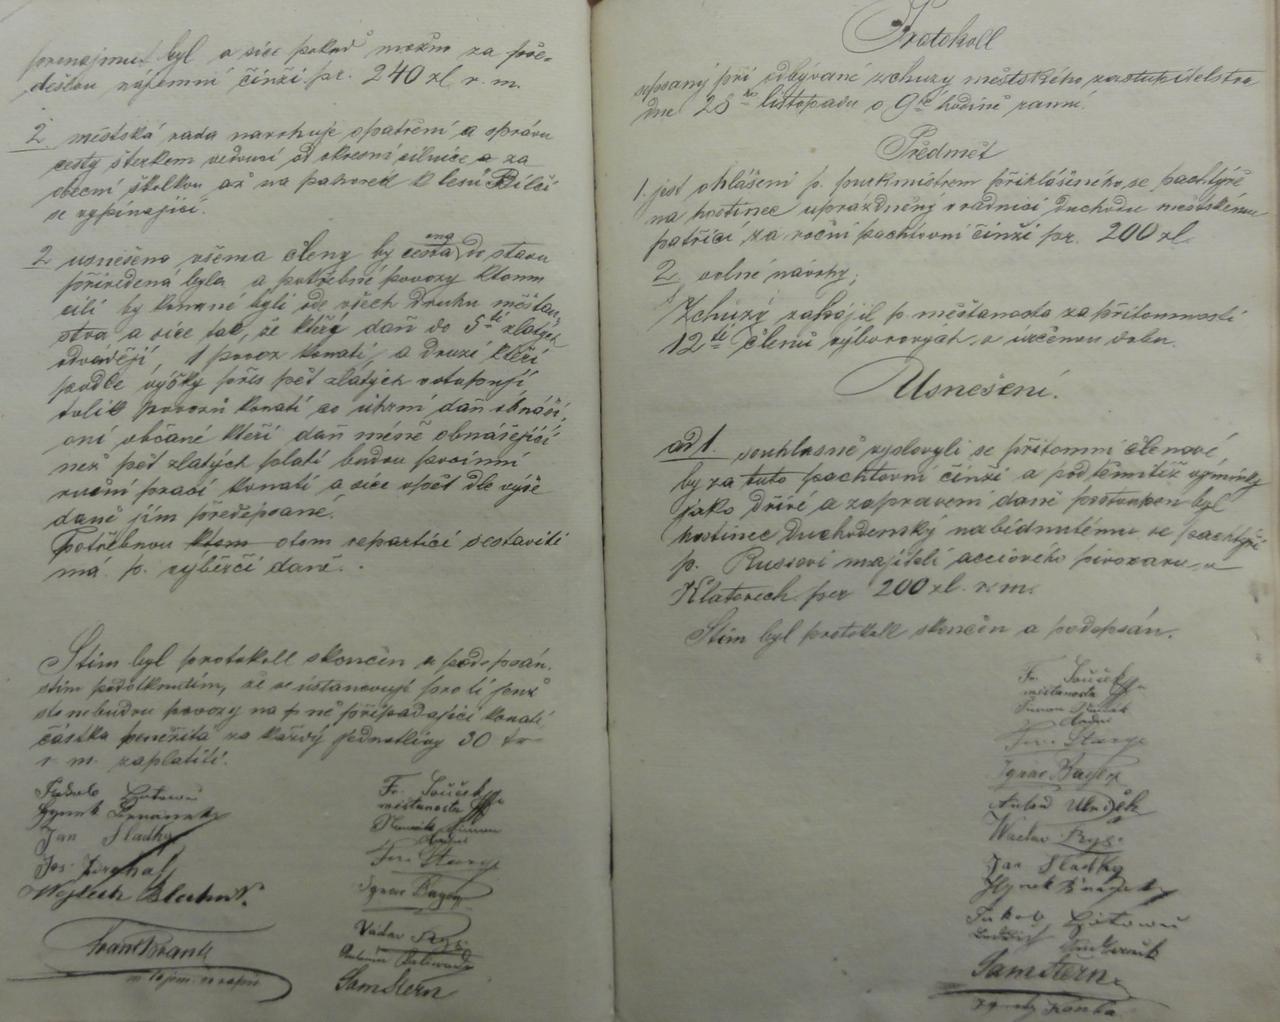 pronajmut byl a sice pokud možno za pře-
dešlou nájemní činži pr. 240 zl. r. m.
2 městská rada navrhuje opatření a správu
cesty štěrkem vedoucí od okresní silnice a za
obecní školkou až na pahorek k lesu Bílčí
se vypínající.
2 usnešeno všema členy by cesta ona do stavu
přivedená byla a potřebné povozy ktomu
cíli by konané byli ode všech druhu měšťan-
stva a sice tak, že kteří daň do 5ti zlatých
odvadějí 1 povoz konati, a druzí kteří
podle výšky přes pět zlatých vstupují
tolik povozů konati co úhrní daň obnáší,
oni občané kteří daň méně obnášející
než pět zlatých platí budou povinni
ruční prací konati a sice opět dle výše
daně jim předepsané.
Potřebnou ktom otom repartici sestaviti
má p. výběrčí daně.
Stím byl protokoll skončen a podepsán,
stím podotknutím, že se ustanovuje pro ti jenž
sto nebudou povozy na ně připadající konati
částka peněžitá za každý jednotlivý 30 kr
r. m. zaplatiti.
Jakob
Hynek
Jan Sladký
Jos.
Wojtěch Blahut.
Frant Frank
Fr. Souček
měšťanosta
Šimon
Radní
Fer. Starý
Ignac Bayer
Václav Ryš
Antonín
Sam Stern
Protokoll
sepsaný při odbývané schuzy městského zastupitelstva
dne 28ho listopadu o 9té hodině ranní.
Předmět
1. jest ohlášení p. purkmistrem přihlášeného se pachtýře
na hostinec uprázdněný v radnici duchodu městskému
patřící za roční pachtovní činži pr. 200 zl.
2 volné návrhy;
Zchůzy zahájil p. měšťanosta za přítomnosti
12ti členů výborových, v určenou dobu.
Usnešení.
ad 1. souhlasně vyslovyli se přítomní členové,
by za tuto pachtovní činži a pod těmitiž výminky
jako dříve a zapravení daně postoupen byl
hostinec Duchodenský nabídnutému se pachtýři
p. Russovi majiteli acciového pivovaru v
Klatovech per 200 zl. r. m.
Stím byl protokoll skončen a podepsán.
Fr. Souček
měšťanosta
Šimon
Radní
Fer. Starý
Ignac Bayer
Anton
Wáclav Ryš
Jan Sladký
Hynek
Jakob
Sam Stern